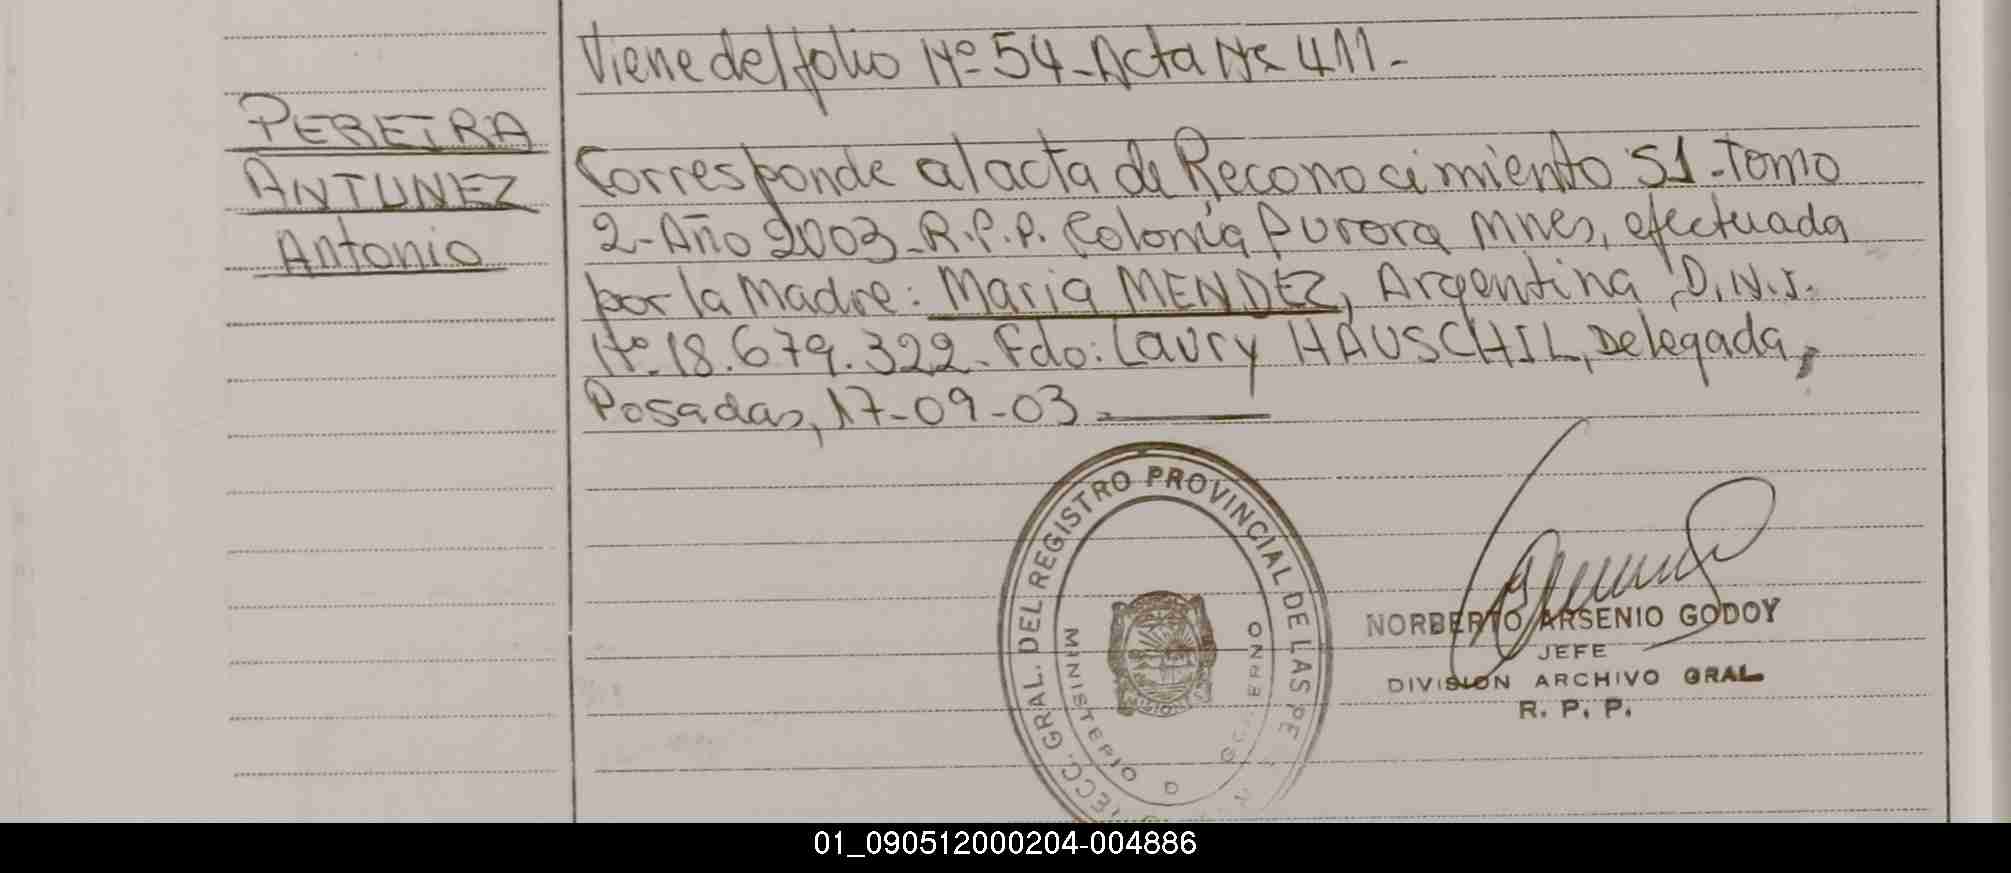 Viene del folio Nº 54-Acta Nº 411.-
PEREIRA
ANTUNEZ
Antonio
Corresponde al acta de Reconocimiento 51-Tomo
2-Año 2003-R.P.P. Colonia Aurora Mnes, efectuada
por la Madre: Maria MENDEZ, Argentina D.N.I.
Nº-18.679.322-Fdo: Laury HAUSCHIL, Delegada,
Posadas, 17-09-03.-
ECC. GRAL. DEL REGISTRO PROVINCIAL DE LAS PE
MINISTERIO D GOBIERNO
NORBERTO ARSENIO GODOY
JEFE
DIVISION ARCHIVO GRAL
R. P. P.
01_090512000204-004886